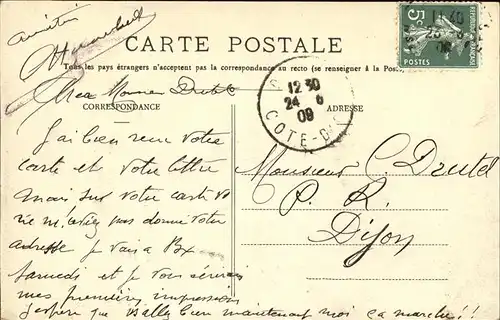 amitiés
CARTE POSTALE
Tous les pays étrangers n'acceptent pas la correspondance au recto (se renseigner à la Poste)
CORRESPONDANCE
ADRESSE
12 30
24 6
09
COTE-D'
5
POSTES
11 40
09
J'ai bien reçu votre
carte et votre lettre
mais sur votre carte vo
ne m'aviez pas donné votre
adresse je vais à
Samedi et je vous écrirai
mes premières impressions
J'espère que bien maintenant moi ça marche!!
Monsieur C. Drutel
P. R.
Dijon